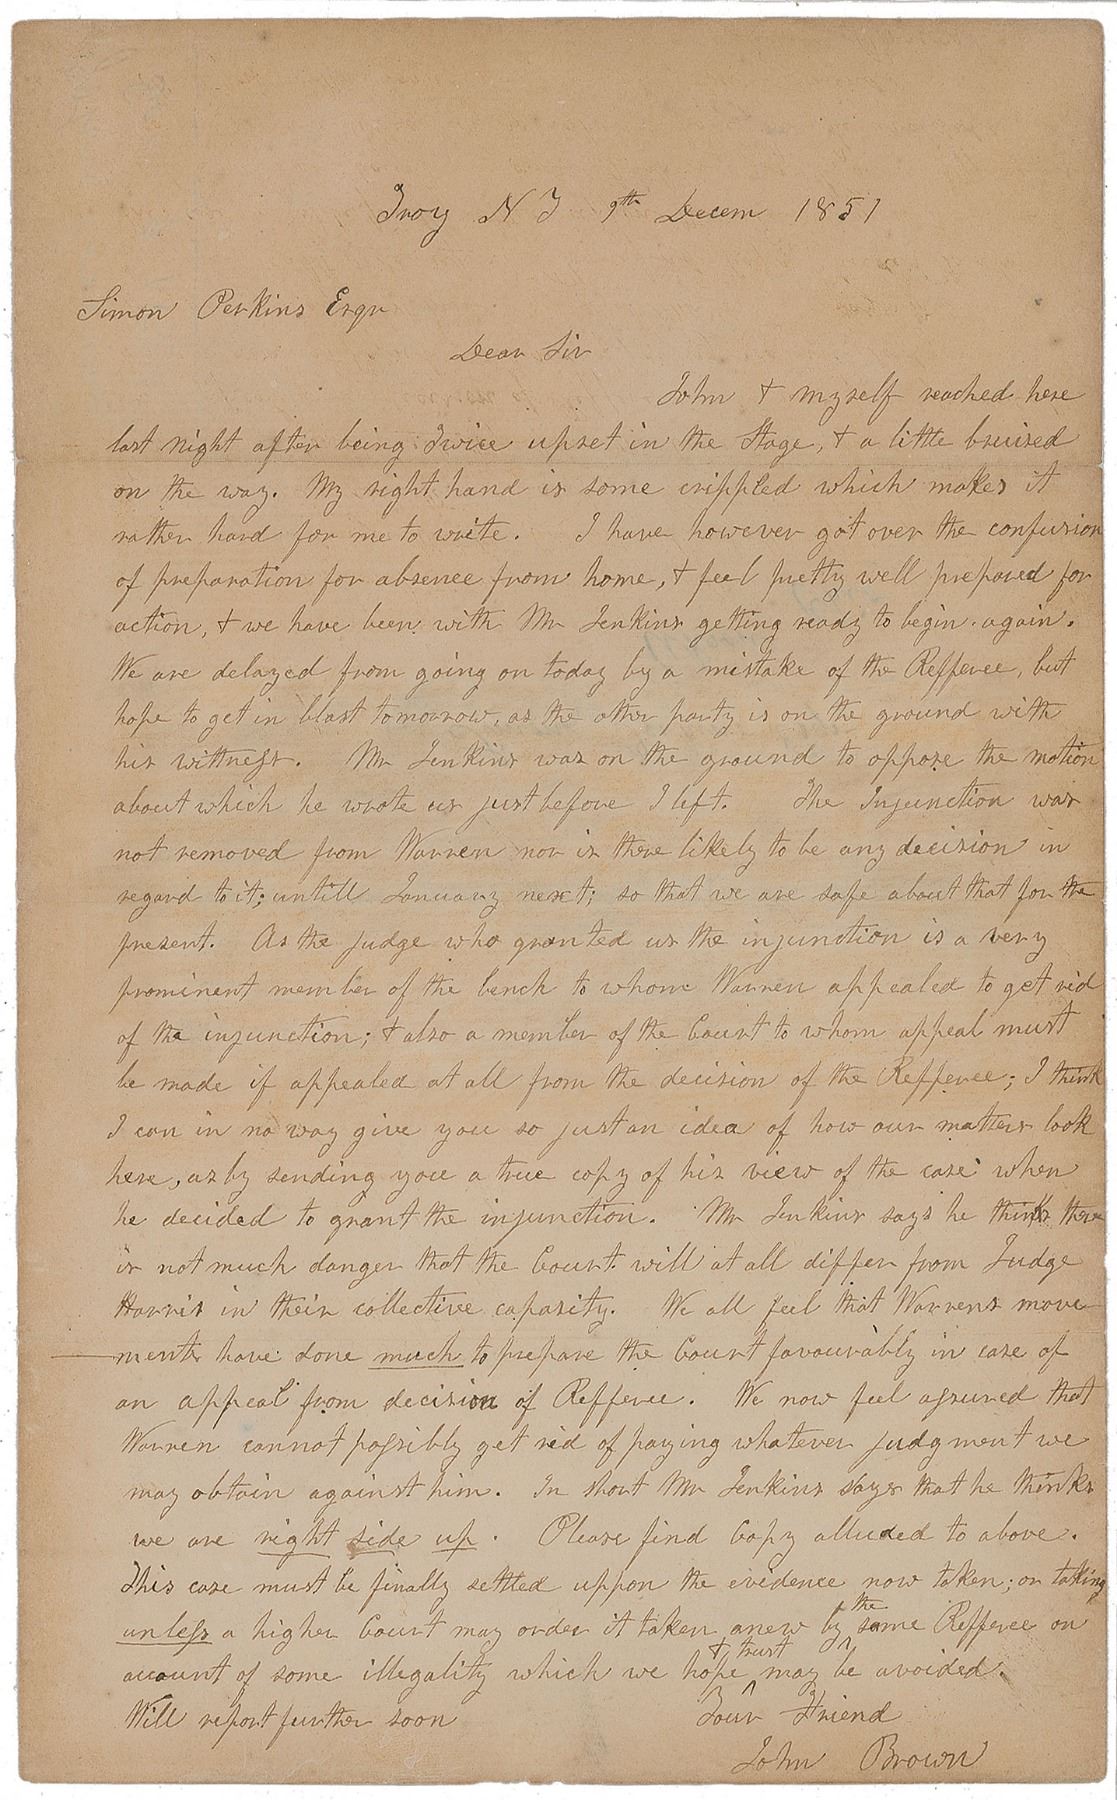 Troy N Y 9th Decem 1851
Simon Perkins Esqr
Dear Sir
John & myself reached here
last night after being twice upset in the Stage, & a little bruised
on the way. My right hand is some crippled which makes it
rather hard for me to write. I have however got over the confusion
of preparation for absence from home, & feel pretty well prepared for
action, & we have been with Mr Jenkins getting ready to begin again.
We are delayed from going on today by a mistake of the Refferee, but
hope to get in blast tomorrow, as the other party is on the ground with
his wittness. Mr Jenkins was on the ground to oppose the motion
about which he wrote us just before I left. The Injunction was
not removed from Warren nor is there likely to be any decision in
regard to it; untill January next; so that we are safe about that for the
present. As the judge who granted us the injunction is a very
prominent member of the bench to whom Warren appealed to get rid
of the injunction; & also a member of the Court to whom appeal must
be made if appealed at all from the decision of the Refferee; I think
I can in no way give you so just an idea of how our matters look
here, as by sending you a true copy of his view of the case when
he decided to grant the injunction. Mr Jenkins says he thinks there
is not much danger that the Court will at all differ from Judge
Harris in their collective capasity. We all feel that Warrens move-
ments have done much to prepare the Court favourably in case of
an appeal from decision of Refferee. We now feel assured that
Warren cannot possibly get rid of paying whatever judgment we
may obtain against him. In short Mr Jenkins says that he thinks
we are right side up. Please find Copy alluded to above.
This case must be finally settled uppon the evidence now taken; or taking
unless a higher Court may order it taken anew by the same Refferee on
account of some illegality which we hope & trust may be avoided.
Will report further soon Your Friend
John Brown